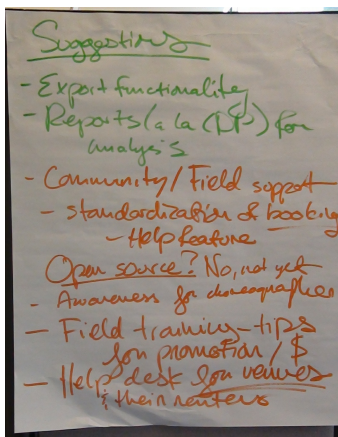 Suggestions
- Export functionality
- Reports (a la (DP) for
analysis
- Community / Field support
- Standardization of booking
- Help feature
Open source? No, not yet
- Awareness for choreographers
- Field training - tips
for promotion / $
- Help desk for venues
& their renters